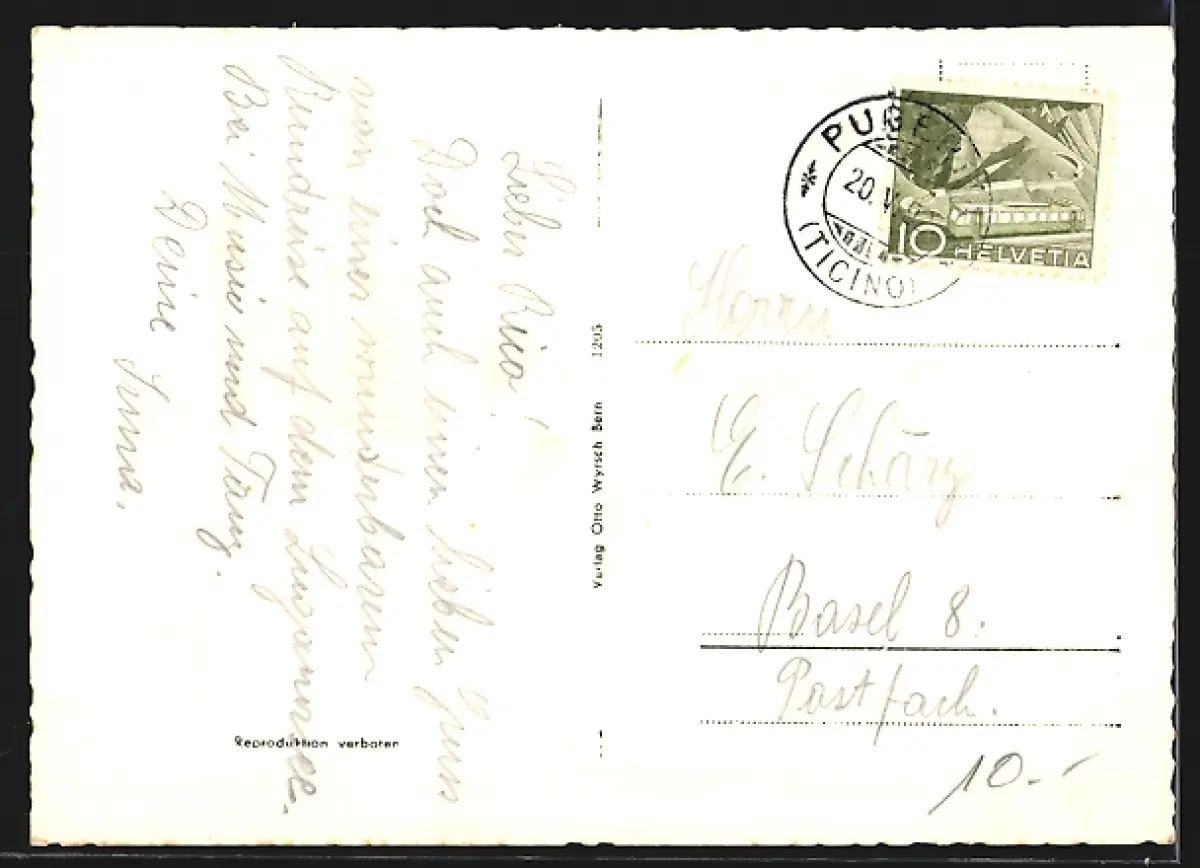 Lieber Rico!
Doch auch einen lieben Gruss
von einer wunderbaren
Rundreise auf dem Luganersee.
Bei Musik und Tanz.
Deine Irma.
Reproduktion verboten
Verlag Otto Wyrsch Bern 1205
PU
20. V
(TICINO)
10 HELVETIA
Herrn
E. Schärz
Basel 8.
Postfach.
10.-